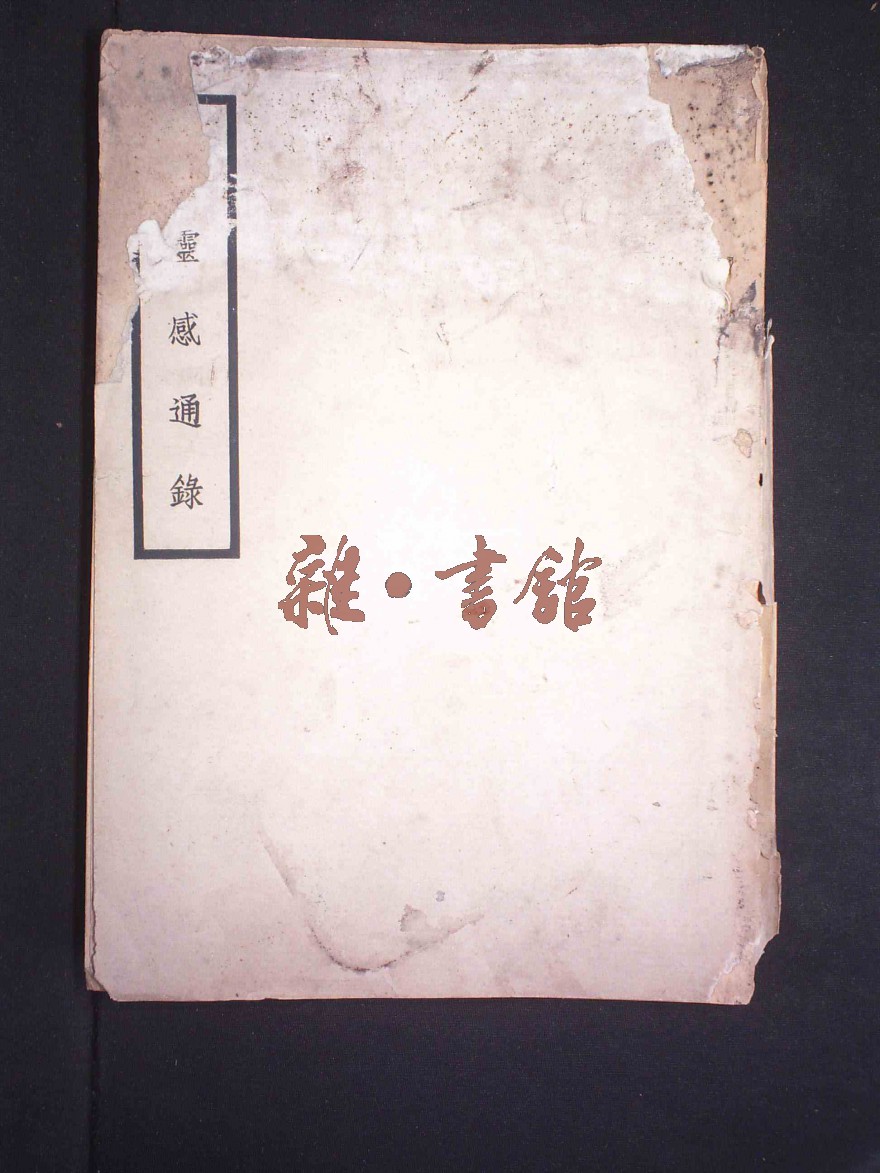 靈感通錄
雜·書館